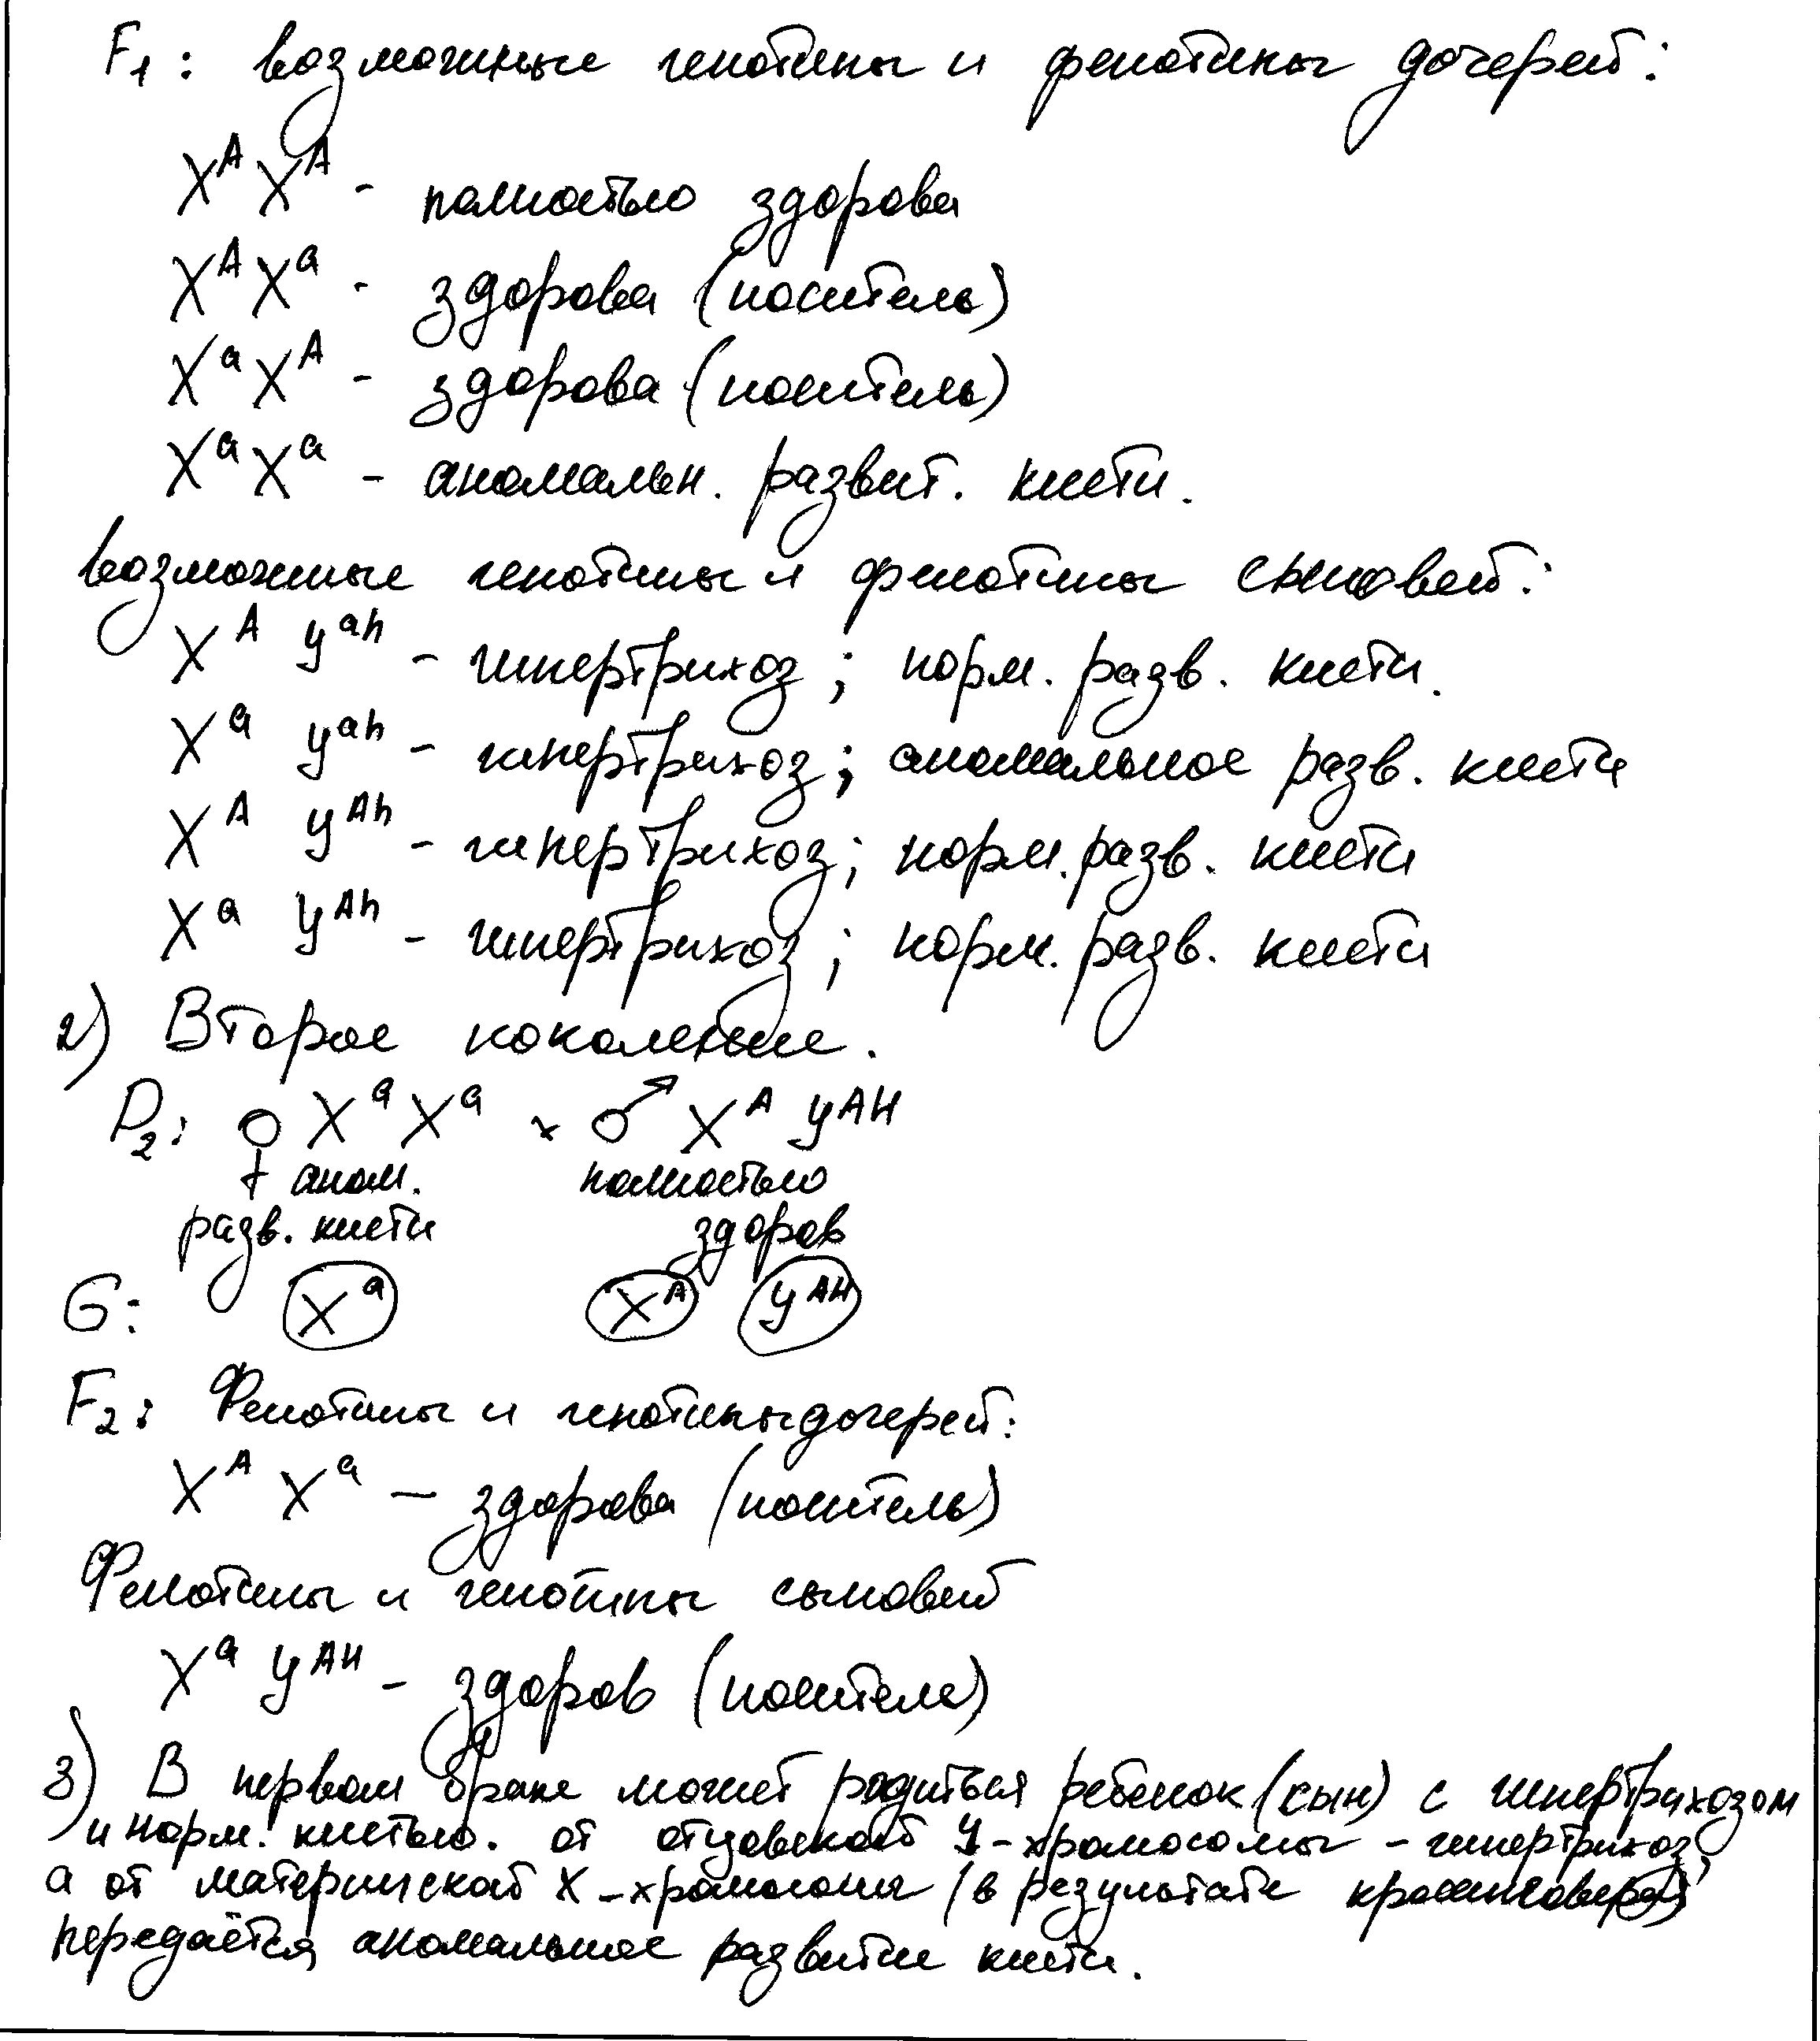 F₁: возможные генотипы и фенотипы дочерей:
X^A X^A - полностью здорова
X^A X^a - здорова (носитель)
X^a X^A - здорова (носитель)
X^a X^a - аномальн. развит. кисти.
возможные генотипы и фенотипы сыновей:
X^A Y^ah - гипертрихоз; норм. разв. кисти.
X^a Y^ah - гипертрихоз; аномальное разв. кисти
X^A Y^Ah - гипертрихоз; норм. разв. кисти
X^a Y^Ah - гипертрихоз; норм. разв. кисти
2) Второе поколение.
P₂: ♀ X^a X^a × ♂ X^A Y^AH
аном. полностью
разв. кисти здоров
G: X^a X^A Y^AH
F₂: Фенотипы и генотипы дочерей:
X^A X^a — здорова (носитель)
Фенотипы и генотипы сыновей
X^a Y^AH - здоров (носитель)
3) В первом браке может родиться ребенок (сын) с гипертрихозом
и норм. кистью. от отцовской Y-хромосомы - гипертрихоз,
а от материнской X-хромосомы (в результате кроссинговера)
передаётся аномальное развитие кисти.